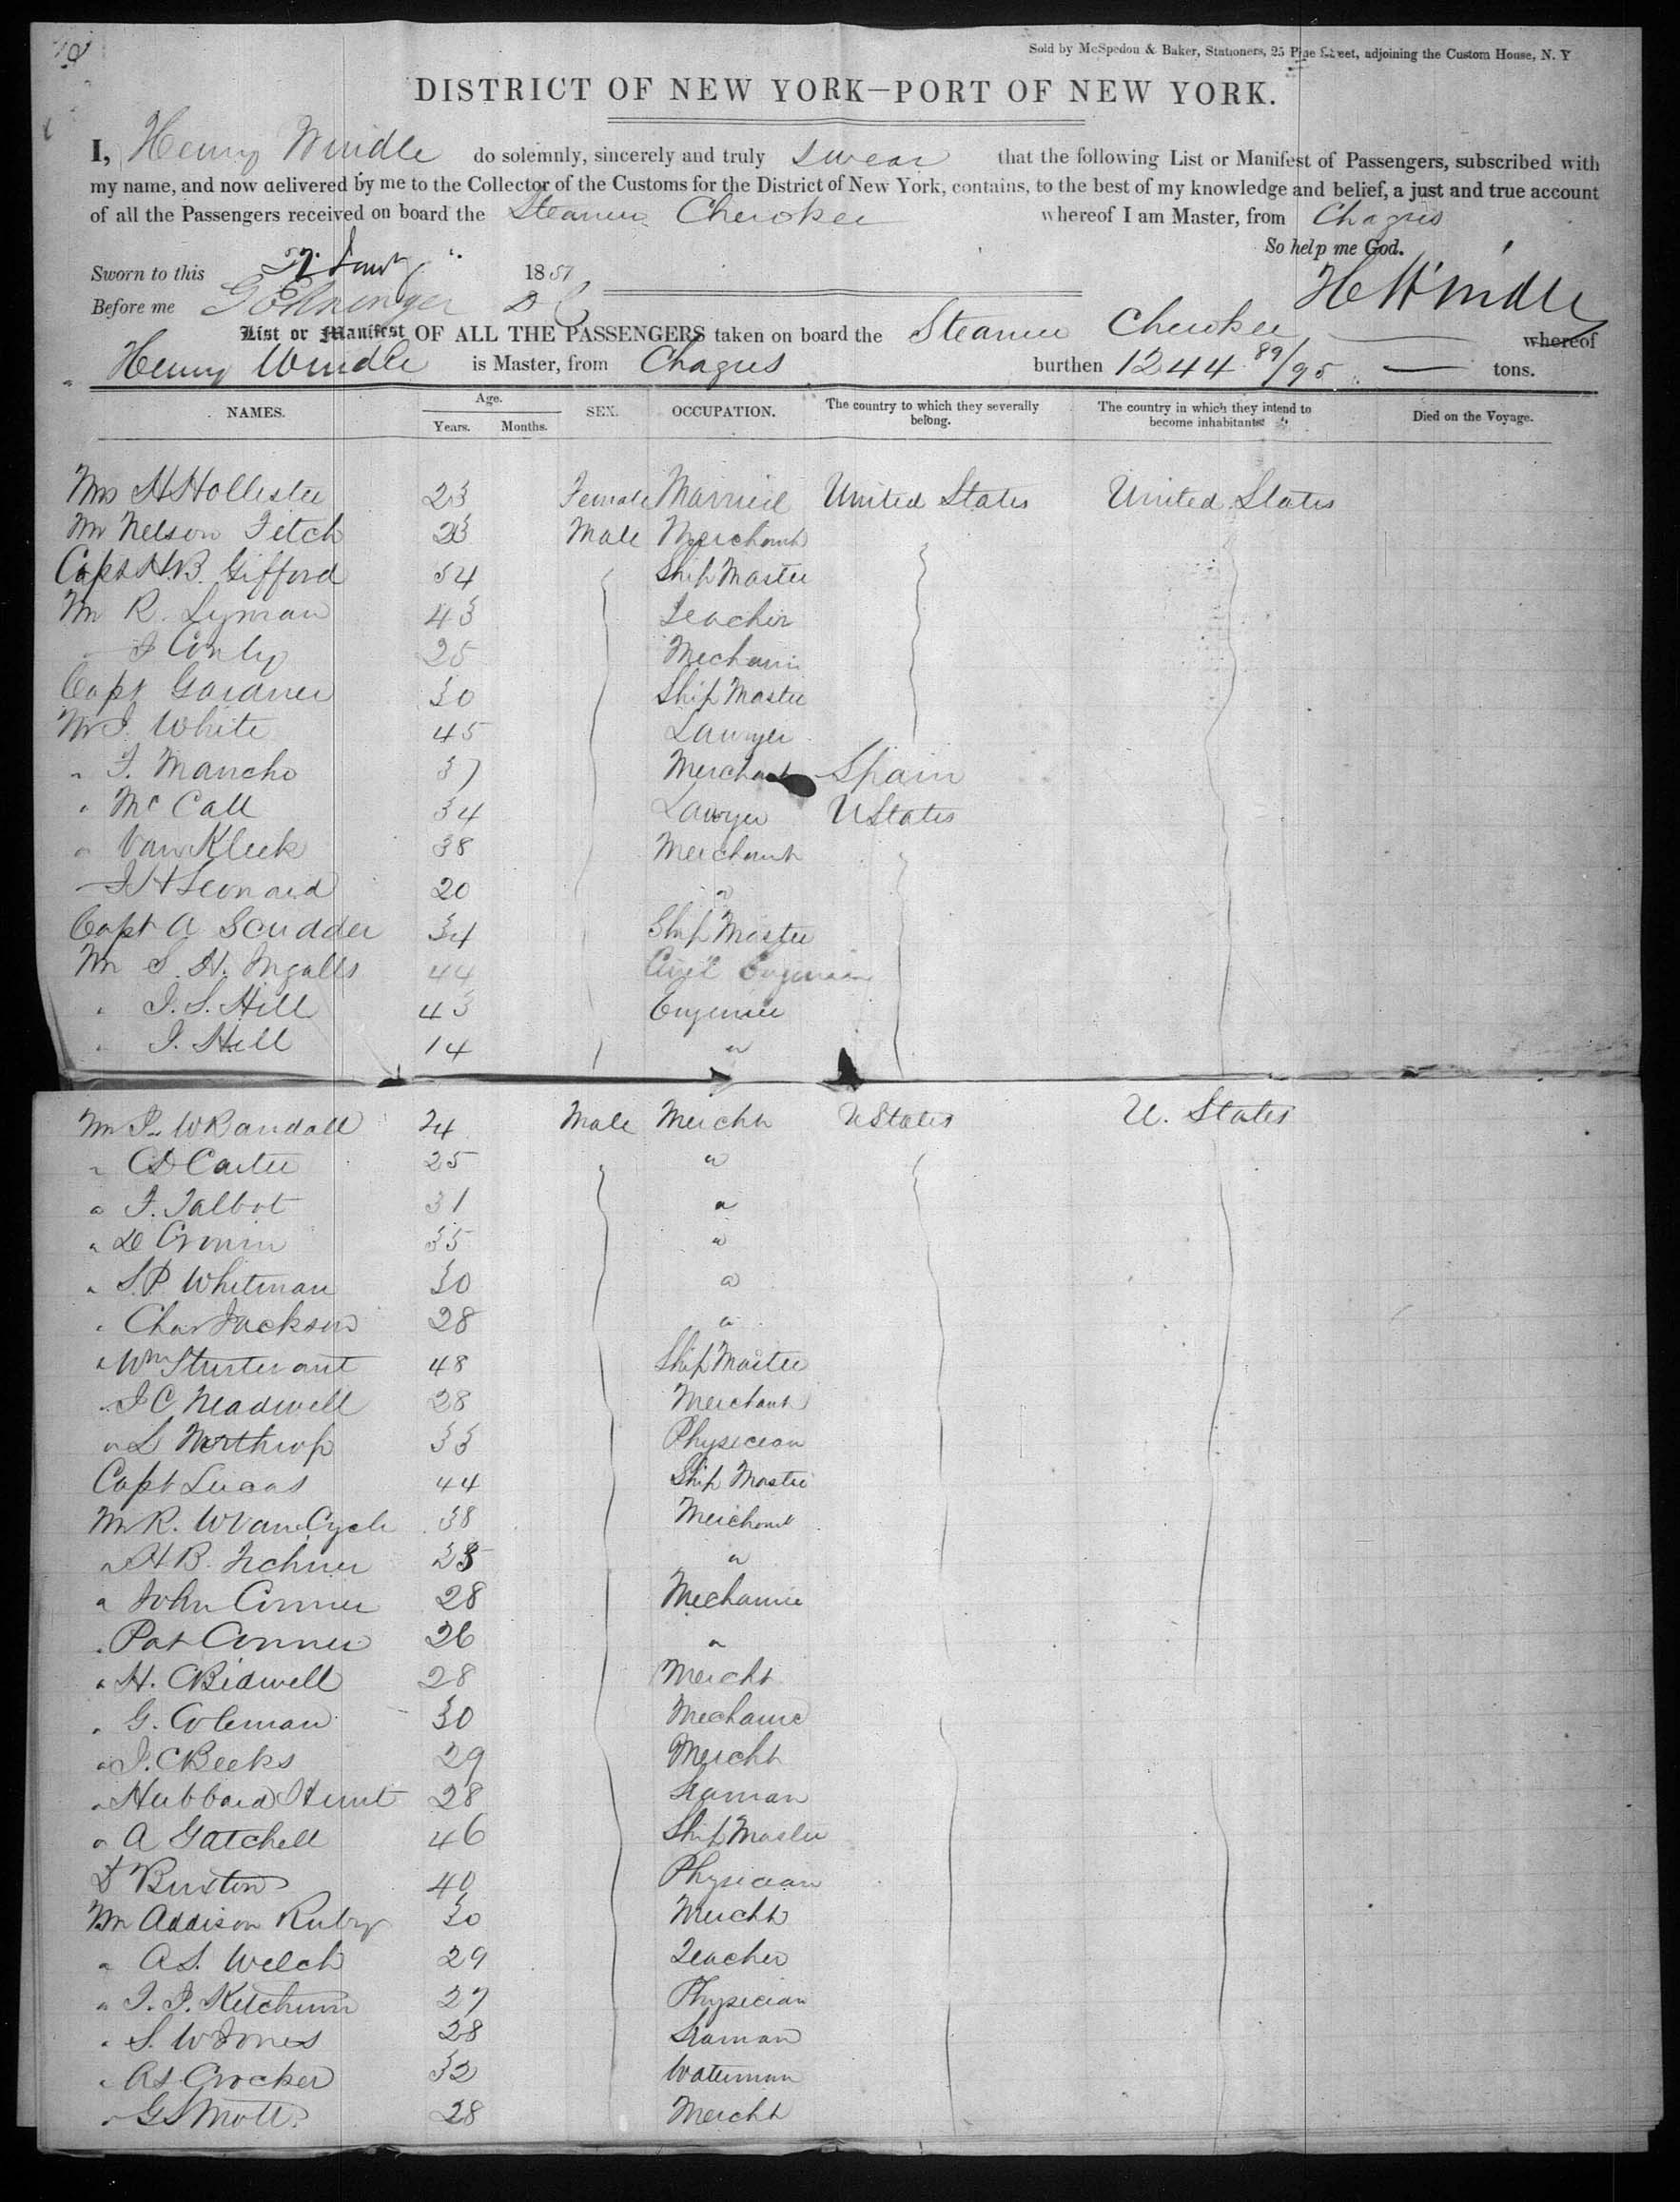 Sold by McSpedon & Baker, Stationers, 25 Pine Street, adjoining the Custom House, N. Y
DISTRICT OF NEW YORK—PORT OF NEW YORK.
I, Henry Windle do solemnly, sincerely and truly swear that the following List or Manifest of Passengers, subscribed with
my name, and now delivered by me to the Collector of the Customs for the District of New York, contains, to the best of my knowledge and belief, a just and true account
of all the Passengers received on board the Steamer Cherokee whereof I am Master, from Chagres
So help me God.
Sworn to this 1851
H Windle
Before me
List or Manifest OF ALL THE PASSENGERS taken on board the Steamer Cherokee whereof
Henry Windle is Master, from Chagres burthen 1244 89/95 tons.
NAMES. Age. Years. Months. SEX. OCCUPATION. The country to which they severally belong. The country in which they intend to become inhabitants. Died on the Voyage.
Mrs H Hollister 23 Female Married United States United States
Mr Nelson Fetch 23 Male Merchant
Capt H.B. Gifford 34 Ship Master
Mr R. Lyman 43 Teacher
" J Conly 25 Mechanic
Capt Gardner 30 Ship Master
Mr J. White 45 Lawyer
" F. Mancho 37 Merchant Spain
" McCall 34 Lawyer U States
" Van Kleek 38 Merchant
" J H Leonard 20 "
Capt A Scudder 34 Ship Master
Mr S. H. Ingalls 44 Civil Engineer
" J. S. Hill 43 Engineer
" J. Hill 14 "
Mr J. W Randall 24 Male Mercht U States U. States
" C D Carter 25 "
" J. Talbot 31 "
" D Cronin 35 "
" S.P. Whitman 30 "
" Chas Jackson 28 "
" Wm Sturtevant 48 Ship Master
" J C Meadwell 28 Merchant
" L Northrop 33 Physician
Capt Lucas 44 Ship Master
Mr R. W Van Cycle 38 Merchant
" H B. "
" John Conner 28 Mechanic
" Pat Conner 26 "
" H. C Bidwell 28 Mercht
" G. Coleman 30 Mechanic
" J. C Beeks 29 Mercht
" Hubbard Hunt 28 Seaman
" A Gatchell 46 Ship Master
Dr Buxton 40 Physician
Mr Addison Ruby 30 Mercht
" A S. Welch 29 Teacher
" J. J. Ketchum 27 Physician
" S. W Jones 28 Seaman
" A S Crocker 32 Waterman
" G S Mott 28 Mercht